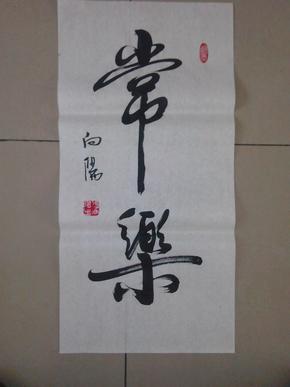 常樂
向陽